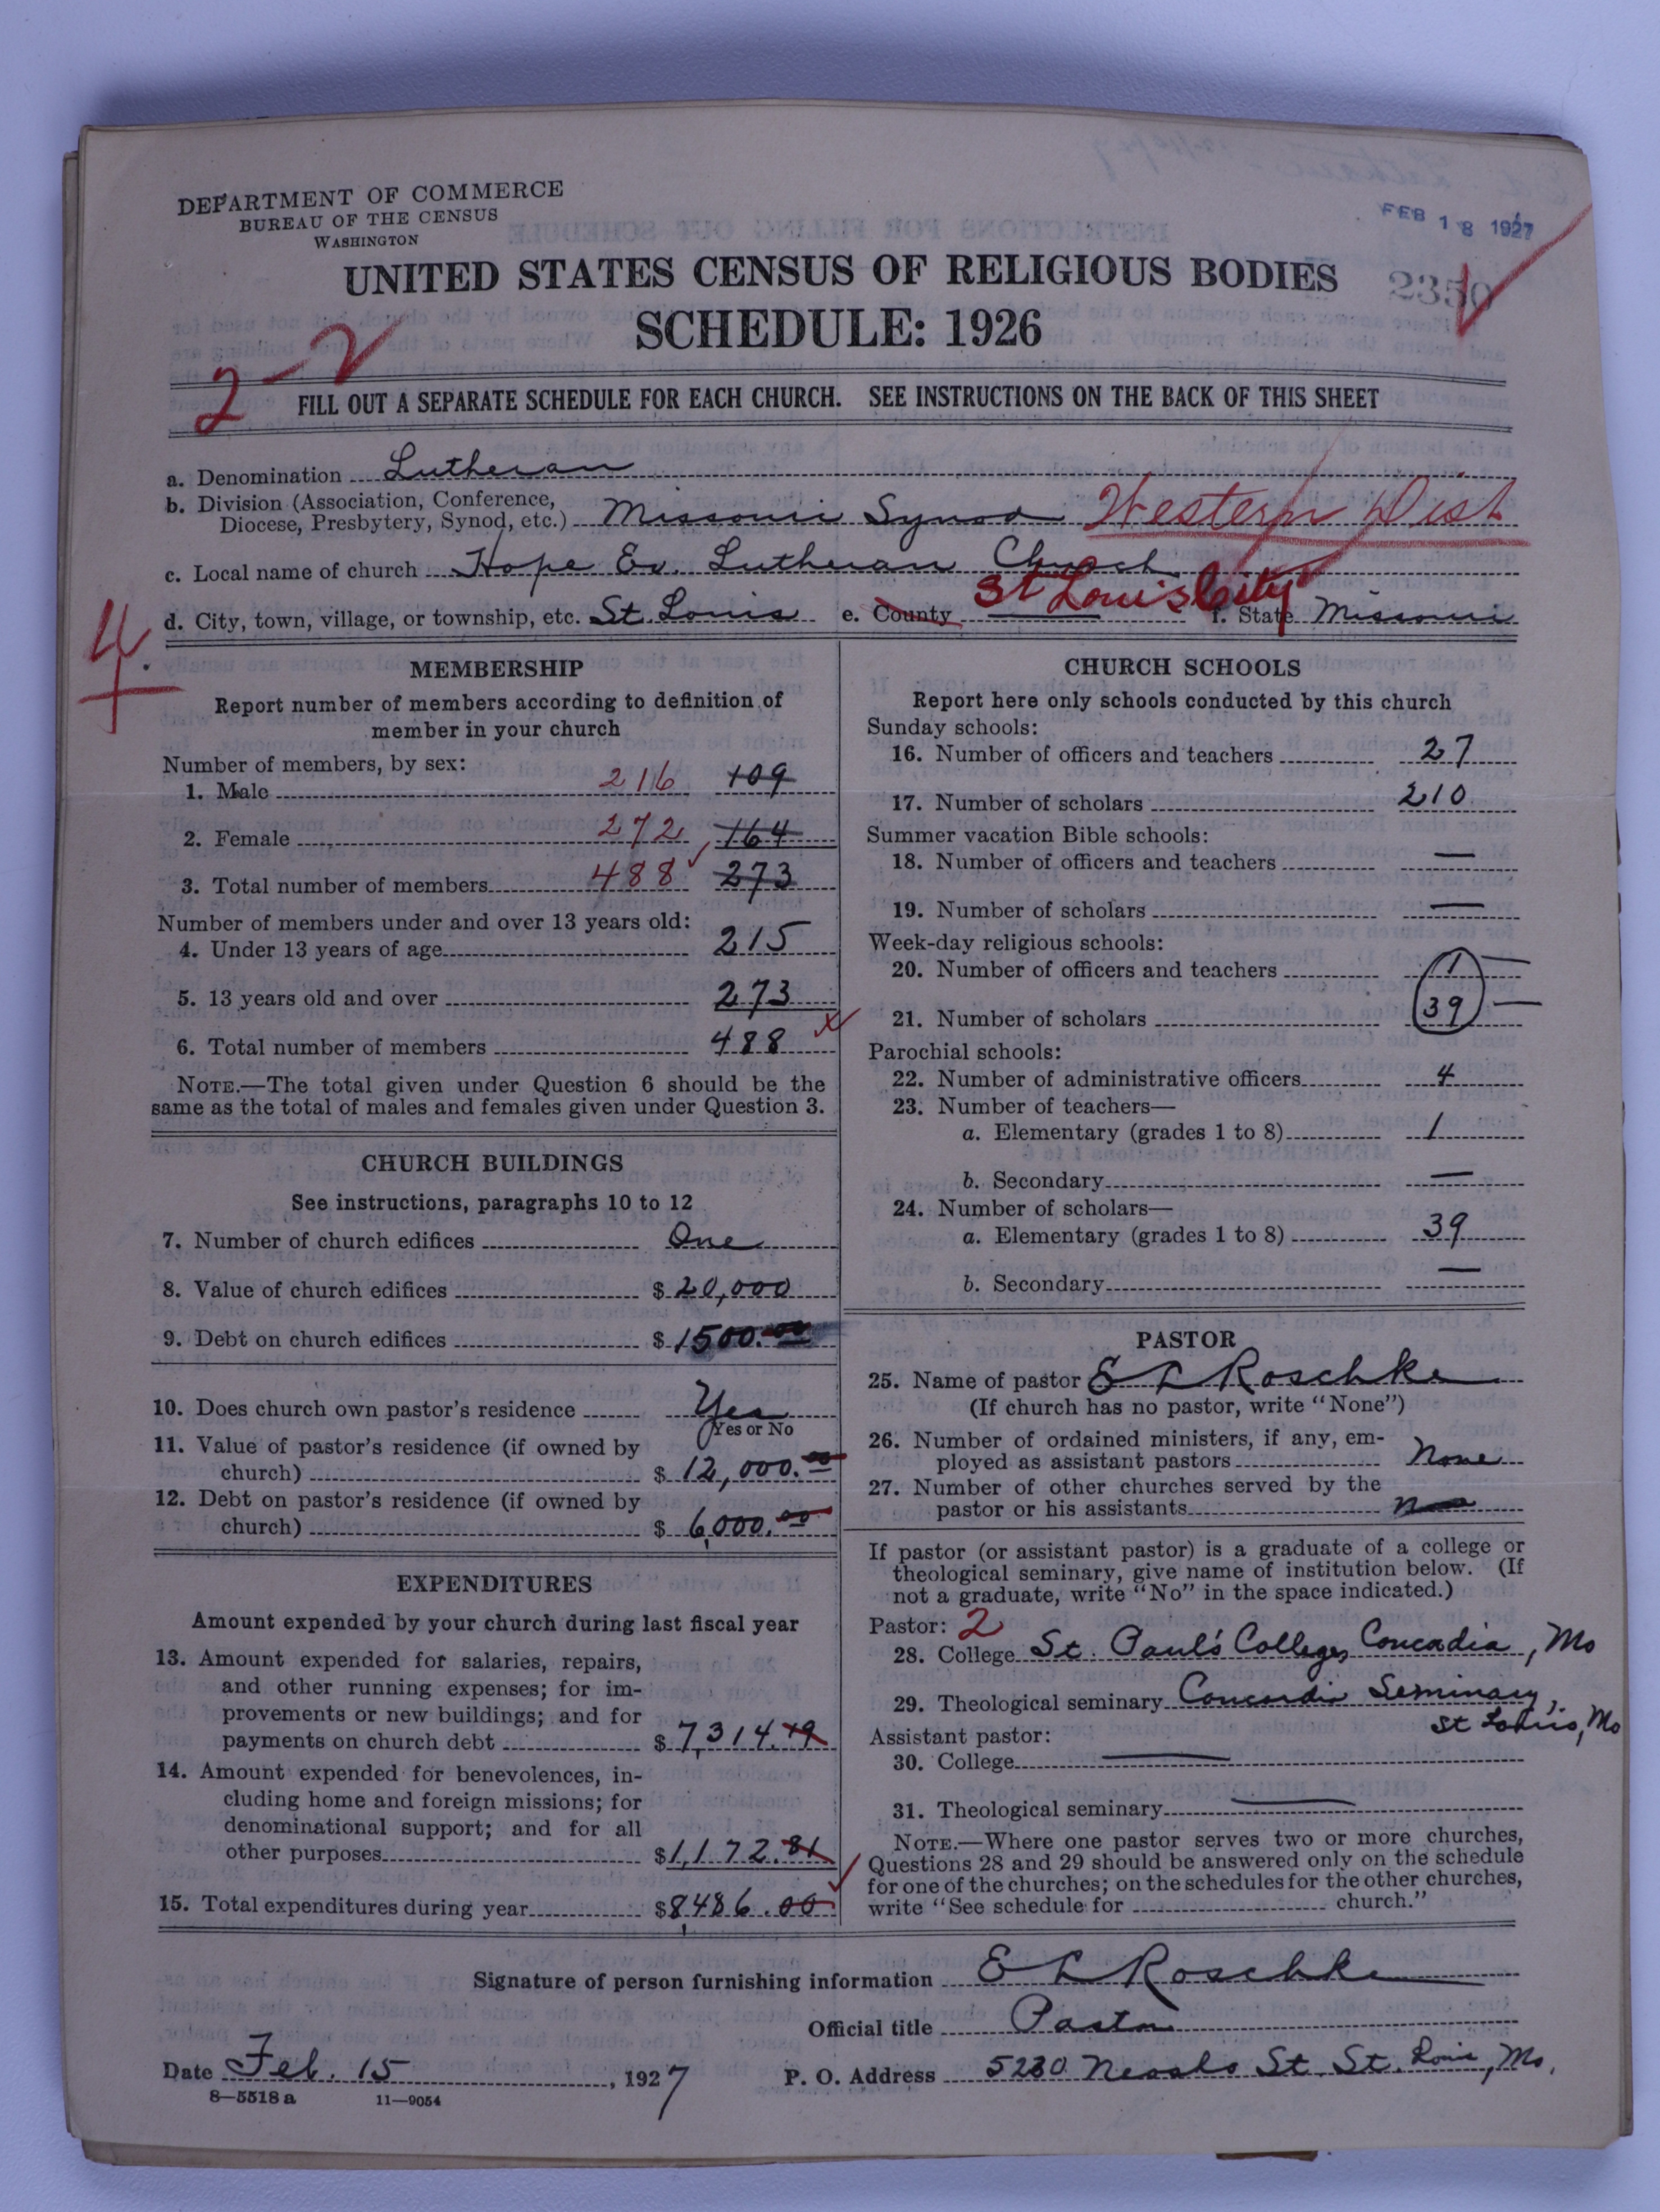 DEPARTMENT OF COMMERCE
BUREAU OF THE CENSUS
WASHINGTON
FEB 18 1927
UNITED STATES CENSUS OF RELIGIOUS BODIES
2350
SCHEDULE: 1926
2-2
FILL OUT A SEPARATE SCHEDULE FOR EACH CHURCH. SEE INSTRUCTIONS ON THE BACK OF THIS SHEET
a. Denomination Lutheran
b. Division (Association, Conference,
Diocese, Presbytery, Synod, etc.) Missouri Synod Western Dist
c. Local name of church Hope Ev. Lutheran Church
d. City, town, village, or township, etc. St. Louis e. County St Louis City f. State Missouri
4
MEMBERSHIP
Report number of members according to definition of
member in your church
Number of members, by sex:
1. Male 216 109
2. Female 272 164
3. Total number of members 488 273
Number of members under and over 13 years old:
4. Under 13 years of age 215
5. 13 years old and over 273
6. Total number of members 488
NOTE.—The total given under Question 6 should be the
same as the total of males and females given under Question 3.
CHURCH BUILDINGS
See instructions, paragraphs 10 to 12
7. Number of church edifices One
8. Value of church edifices $ 20,000
9. Debt on church edifices $ 1500.00
10. Does church own pastor's residence Yes
Yes or No
11. Value of pastor's residence (if owned by
church) $ 12,000.00
12. Debt on pastor's residence (if owned by
church) $ 6,000.00
EXPENDITURES
Amount expended by your church during last fiscal year
13. Amount expended for salaries, repairs,
and other running expenses; for im-
provements or new buildings; and for
payments on church debt $ 7,314.19
14. Amount expended for benevolences, in-
cluding home and foreign missions; for
denominational support; and for all
other purposes $1,172.81
15. Total expenditures during year $8,486.00
CHURCH SCHOOLS
Report here only schools conducted by this church
Sunday schools:
16. Number of officers and teachers 27
17. Number of scholars 210
Summer vacation Bible schools:
18. Number of officers and teachers —
19. Number of scholars —
Week-day religious schools:
20. Number of officers and teachers 1 —
21. Number of scholars 39 —
Parochial schools:
22. Number of administrative officers 4
23. Number of teachers—
a. Elementary (grades 1 to 8) 1
b. Secondary —
24. Number of scholars—
a. Elementary (grades 1 to 8) 39
b. Secondary —
PASTOR
25. Name of pastor E L Roschke
(If church has no pastor, write "None")
26. Number of ordained ministers, if any, em-
ployed as assistant pastors None
27. Number of other churches served by the
pastor or his assistants
If pastor (or assistant pastor) is a graduate of a college or
theological seminary, give name of institution below. (If
not a graduate, write "No" in the space indicated.)
Pastor: 2
28. College St. Paul's College, Concadia, Mo
29. Theological seminary Concordia Seminary,
St Louis, Mo
Assistant pastor:
30. College —
31. Theological seminary —
NOTE.—Where one pastor serves two or more churches,
Questions 28 and 29 should be answered only on the schedule
for one of the churches; on the schedules for the other churches,
write "See schedule for church."
Signature of person furnishing information E L Roschke
Official title Pastor
Date Feb. 15, 1927 P. O. Address 5230 St. St. Louis, Mo.
8—5518 a 11—9054